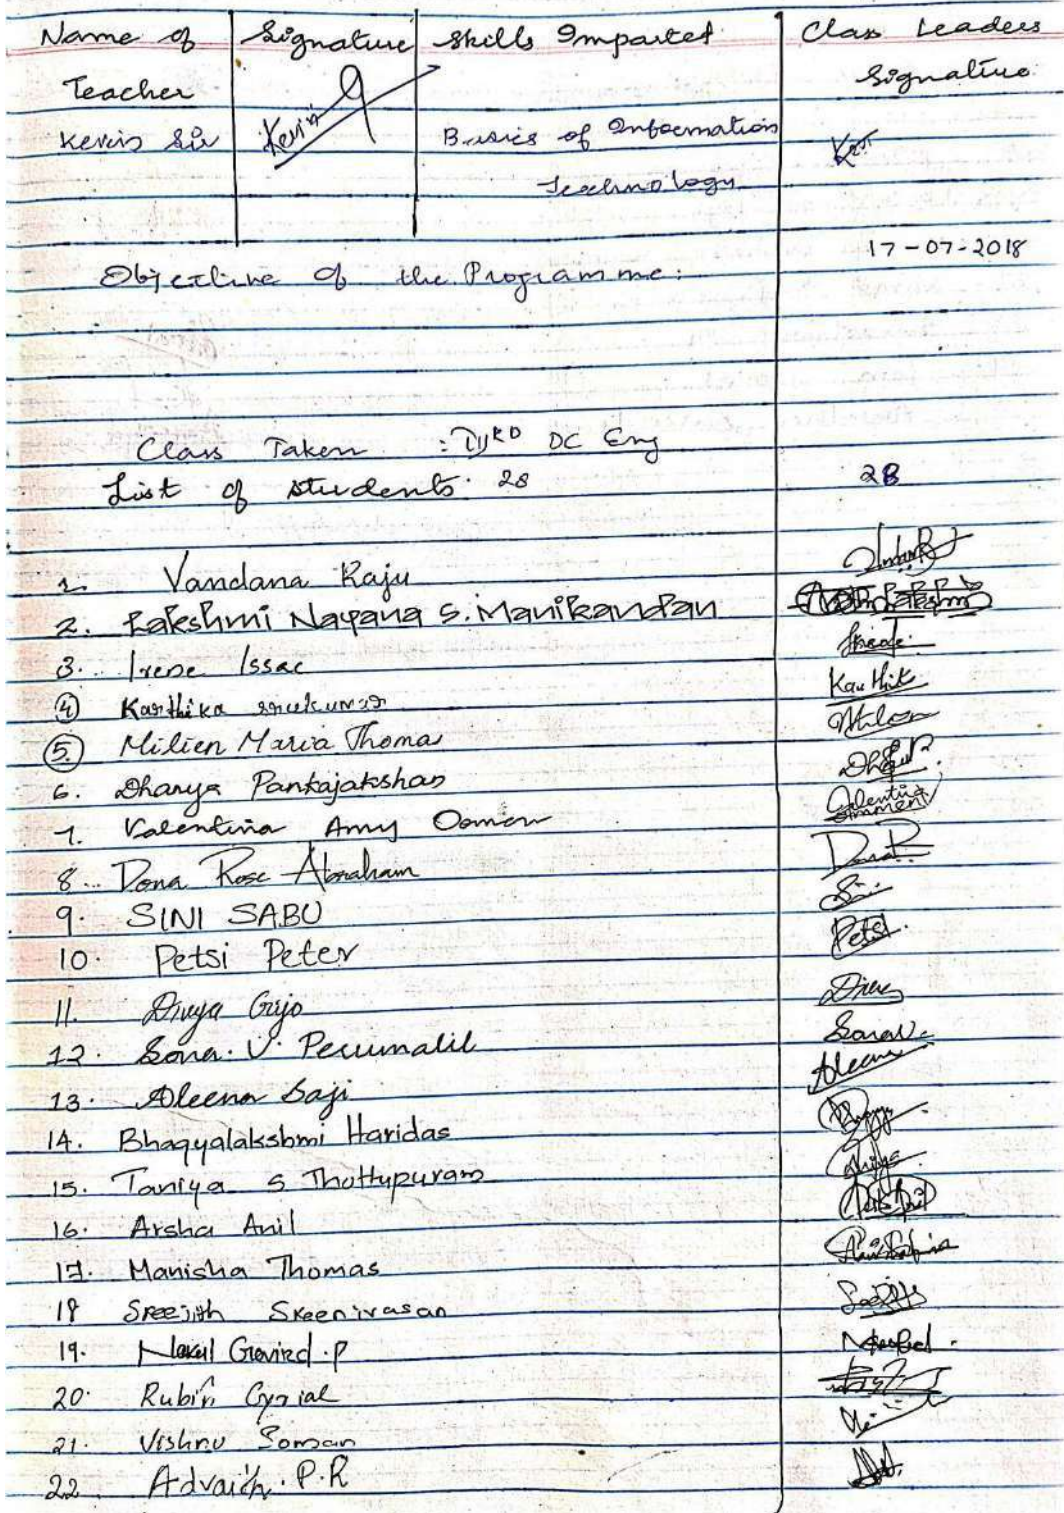 Name of Signature Skills Imparted Class Leaders
Teacher Signature
Kevin Sir Kevin Basics of Information
Technology
17-07-2018
Objective of the Programme:
Class Taken : IIIRD DC Eng
List of students. 28 28
1. Vandana Raju
2. Lakshmi Nayana S. Manikandan
3. Irene Issac
4 Karthika Sreekumar Karthik
5. Milien Maria Thomas
6. Dhanya Pankajakshan
7. Valentina Amy Oomen
8. Dona Rose Abraham
9. SINI SABU Sini
10. Petsi Peter Petsi
11. Divya Gijo
12. Sona. V. Perumalil
13. Aleena Saji Aleena
14. Bhagyalakshmi Haridas
15. Taniya S Thottupuram
16. Arsha Anil
17. Manisha Thomas
18 Sreejith Sreenivasan
19. Nakul Govind.P
20. Rubin Cyrial
21. Vishnu Soman
22 Advaith. P.R